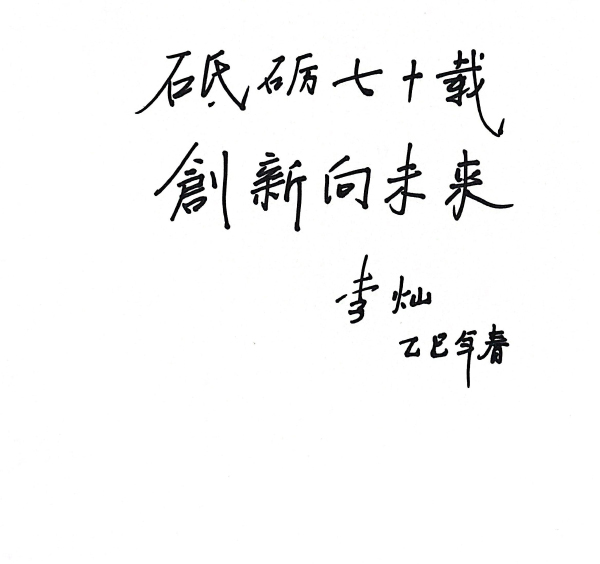 砥砺七十载
創新向未来
李灿
乙巳年春